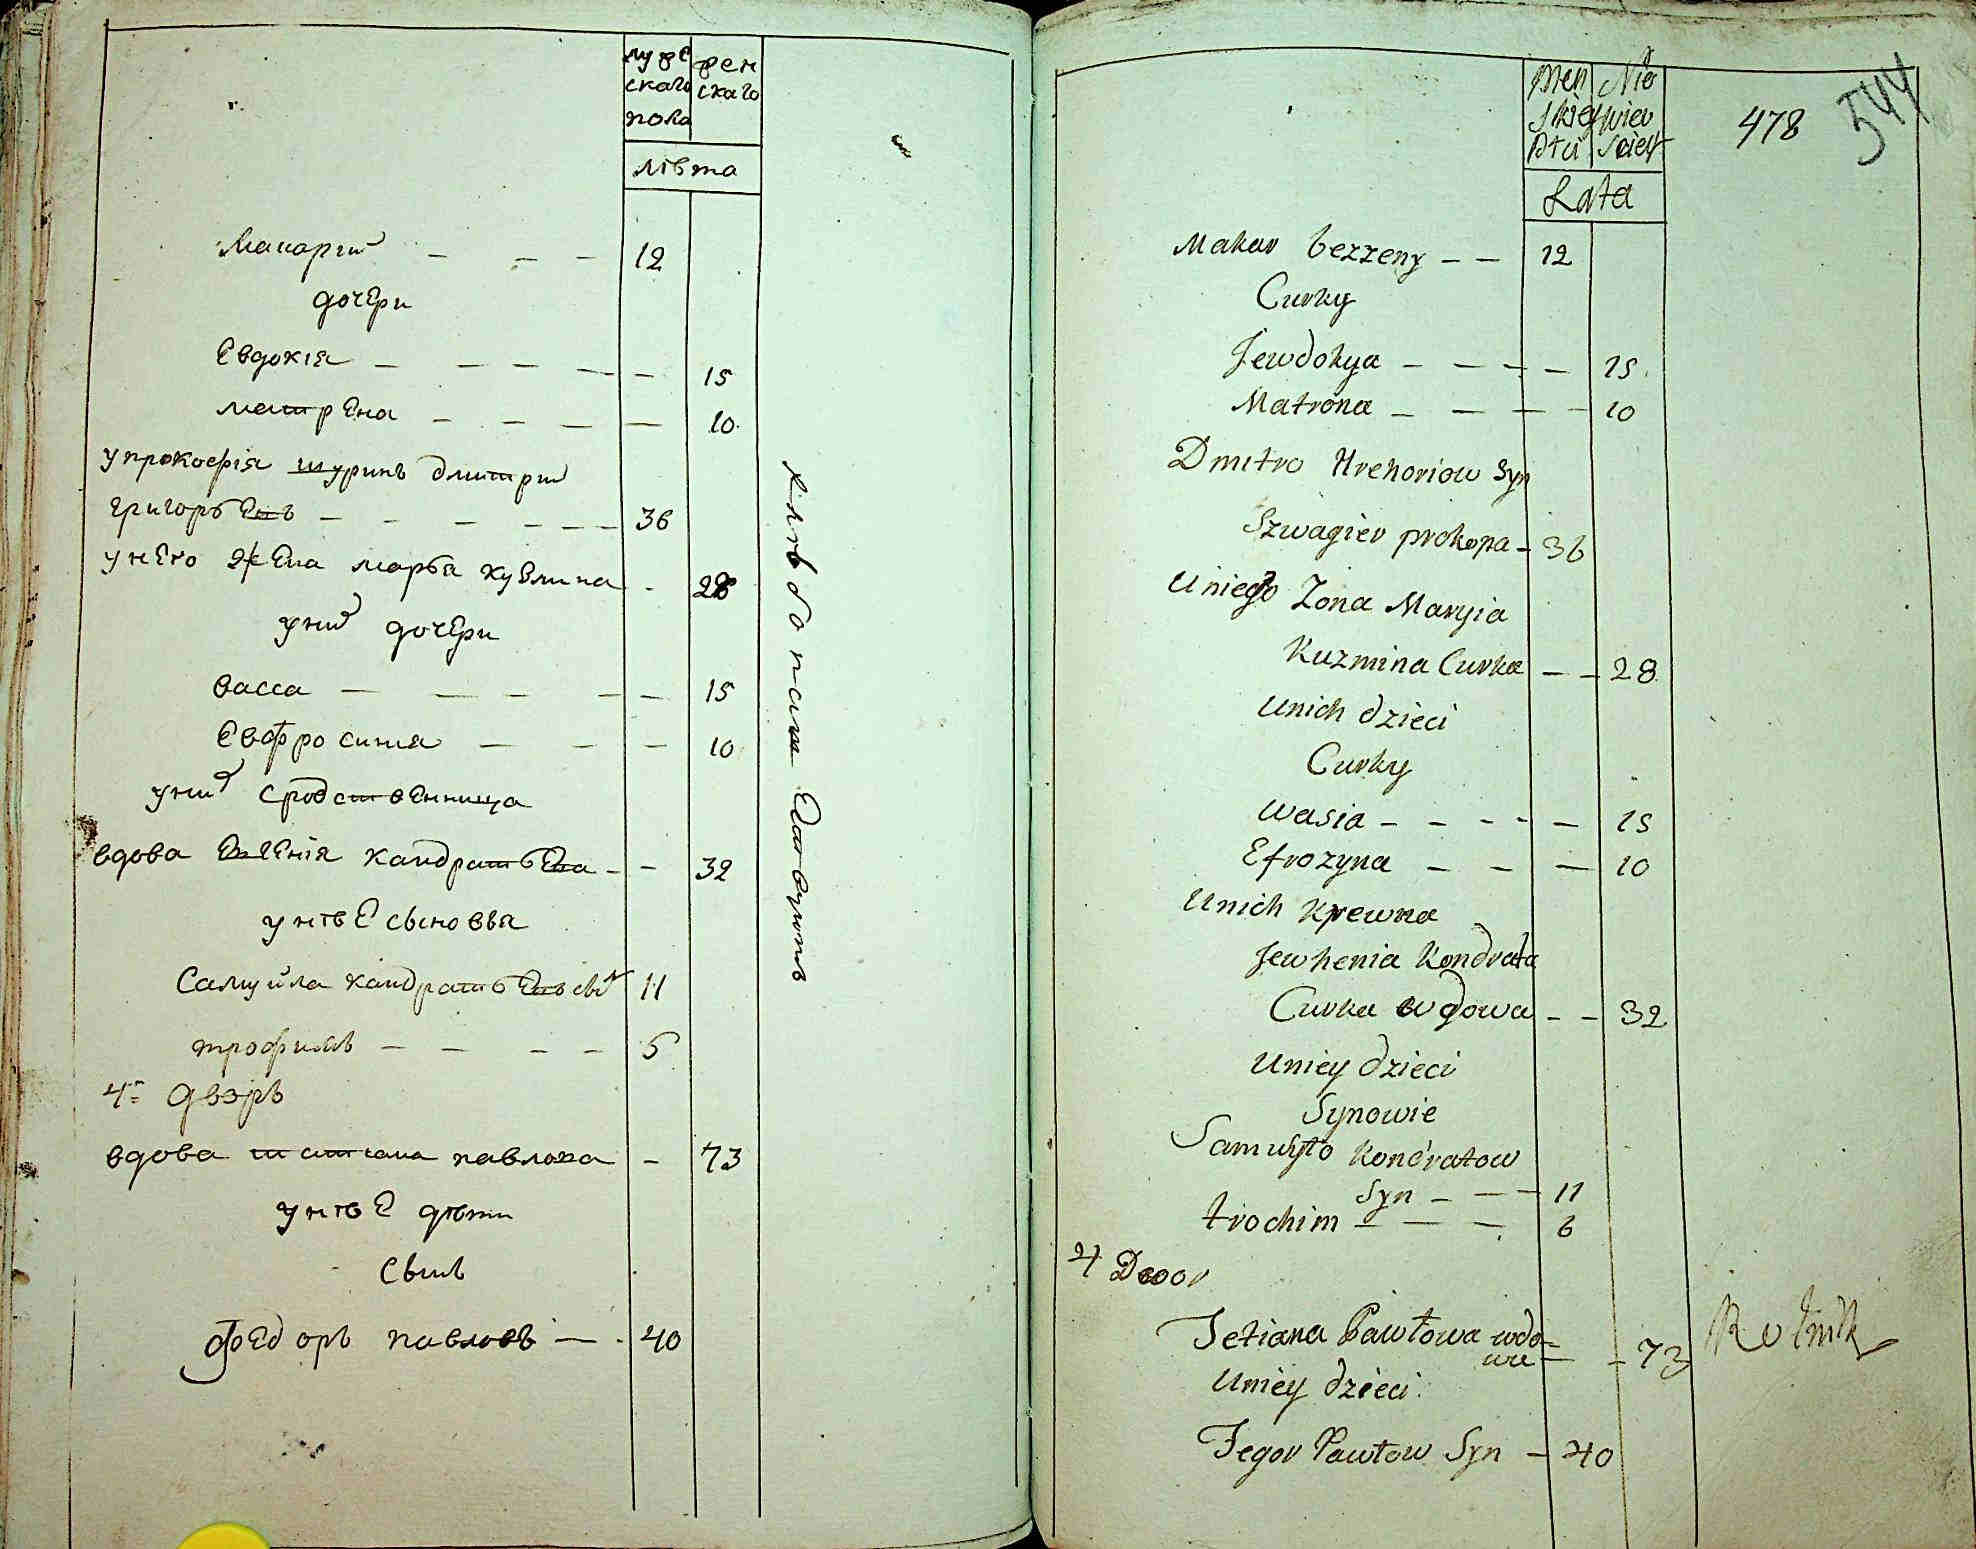 мужескаго пола
женскаго
лѣта
Макарий — — — 12
дочери
Евдокія — — — — — 15
матрена — — — — — 10
упрокофія шуринъ дмитрий
григорьевъ — — — — — — 36
унего жена марья кузмина - 28
уних дочери
васса — — — — — 15
Евфросиния — — — 10
уних сродственница
вдова Евгенія кандратьева - — 32
у нѣе сыновья
Самуйла кандратьевъ 11
трофимъ — — — — 6
4й дворъ
вдова татиана павлова — 73
у нѣе дѣти
сынъ
федоръ павловъ — - 40
478
544
Men skiey Płci
Nie wiev sciey
Lata
Makar bezzeny — — 12
Curky
Jewdokya — — — — 15
Matrona — — — — 10
Dmitro Hrehoriow Syn
Szwagier prokopa — 36
Uniego Zona Maryia
Kuzmina Curka — — 28
Unich dzieci
Curky
Wasia — — — — — 15
Efrozyna — — — 10
Unich Krewna
Jewhenia Kondrata
Curka wdowa — — 32
Uniey dzieci
Synowie
Samuyło Kondratow
Syn — — — 11
trochim — — — 6
4 Dwor
Tetiana Pawłowa wdo=
wa — — 73
Uniey dzieci
Fegor Pawłow Syn — 40